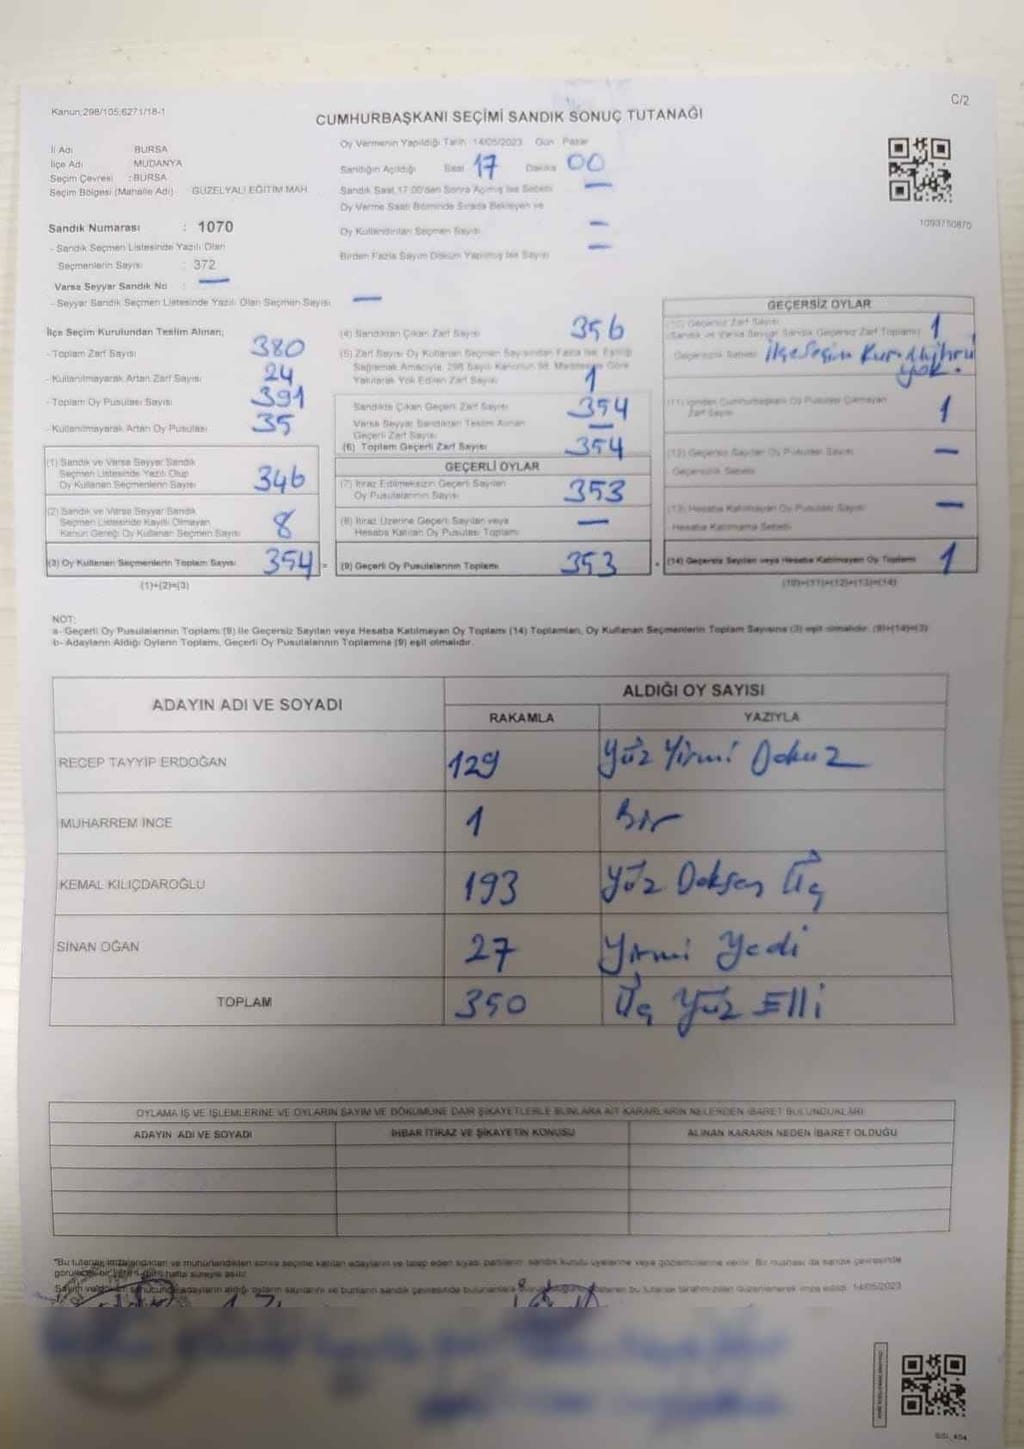 Kanun:298/105;6271/18-1
C/2
CUMHURBAŞKANI SEÇİMİ SANDIK SONUÇ TUTANAĞI
İl Adı BURSA
İlçe Adı MUDANYA
Seçim Çevresi : BURSA
Seçim Bölgesi (Mahalle Adı) GÜZELYALI EĞİTİM MAH.
Oy Vermenin Yapıldığı Tarih 14/05/2023 Gün Pazar
Sandığın Açıldığı Saat 17 Dakika 00
Sandık Saat 17:00'den Sonra Açılmış İse Sebebi —
Oy Verme Saati Bitiminde Sırada Bekleyen ve
Oy Kullandırılan Seçmen Sayısı —
Birden Fazla Sayım Döküm Yapılmış İse Sayısı —
1093750870
Sandık Numarası : 1070
- Sandık Seçmen Listesinde Yazılı Olan
Seçmenlerin Sayısı : 372
Varsa Seyyar Sandık No : —
- Seyyar Sandık Seçmen Listesinde Yazılı Olan Seçmen Sayısı —
İlçe Seçim Kurulundan Teslim Alınan;
- Toplam Zarf Sayısı 380
- Kullanılmayarak Artan Zarf Sayısı 24
- Toplam Oy Pusulası Sayısı 391
- Kullanılmayarak Artan Oy Pusulası 35
(1) Sandık ve Varsa Seyyar Sandık
Seçmen Listesinde Yazılı Olup
Oy Kullanan Seçmenlerin Sayısı 346
(2) Sandık ve Varsa Seyyar Sandık
Seçmen Listesinde Kayıtlı Olmayan
Kanun Gereği Oy Kullanan Seçmen Sayısı 8
(3) Oy Kullanan Seçmenlerin Toplam Sayısı 354 =
(1)+(2)=(3)
(4) Sandıktan Çıkan Zarf Sayısı 356
(5) Zarf Sayısı Oy Kullanan Seçmen Sayısından Fazla İse, Eşitliği
Sağlamak Amacıyla, 298 Sayılı Kanunun 98. Maddesine Göre
Yakılarak Yok Edilen Zarf Sayısı 1
Sandıkta Çıkan Geçerli Zarf Sayısı 354
Varsa Seyyar Sandıktan Teslim Alınan
Geçerli Zarf Sayısı —
(6) Toplam Geçerli Zarf Sayısı 354
GEÇERLİ OYLAR
(7) İtiraz Edilmeksizin Geçerli Sayılan
Oy Pusulalarının Sayısı 353
(8) İtiraz Üzerine Geçerli Sayılan veya
Hesaba Katılan Oy Pusulası Toplamı —
(9) Geçerli Oy Pusulalarının Toplamı 353 +
GEÇERSİZ OYLAR
(10) Geçersiz Zarf Sayısı
(Sandık ve Varsa Seyyar Sandık Geçersiz Zarf Toplamı) 1
Geçersizlik Sebebi İlçe Seçim Kurulu Mührü
yok.
(11) İçinden Cumhurbaşkanı Oy Pusulası Çıkmayan
Zarf Sayısı 1
(12) Geçersiz Sayılan Oy Pusulası Sayısı —
Geçersizlik Sebebi
(13) Hesaba Katılmayan Oy Pusulası Sayısı —
Hesaba Katılmama Sebebi
(14) Geçersiz Sayılan veya Hesaba Katılmayan Oy Toplamı 1
(10)+(11)+(12)+(13)=(14)
NOT:
a- Geçerli Oy Pusulalarının Toplamı (9) ile Geçersiz Sayılan veya Hesaba Katılmayan Oy Toplamı (14) Toplamları, Oy Kullanan Seçmenlerin Toplam Sayısına (3) eşit olmalıdır. (9)+(14)=(3)
b- Adayların Aldığı Oyların Toplamı, Geçerli Oy Pusulalarının Toplamına (9) eşit olmalıdır.
ADAYIN ADI VE SOYADI
ALDIĞI OY SAYISI
RAKAMLA YAZIYLA
RECEP TAYYİP ERDOĞAN 129 Yüz Yirmi Dokuz
MUHARREM İNCE 1 Bir
KEMAL KILIÇDAROĞLU 193 Yüz Doksan Üç
SİNAN OĞAN 27 Yirmi Yedi
TOPLAM 350 Üç Yüz Elli
OYLAMA İŞ VE İŞLEMLERİNE VE OYLARIN SAYIM VE DÖKÜMÜNE DAİR ŞİKAYETLERLE BUNLARA AİT KARARLARIN NELERDEN İBARET BULUNDUKLARI
ADAYIN ADI VE SOYADI İHBAR İTİRAZ VE ŞİKAYETİN KONUSU ALINAN KARARIN NEDEN İBARET OLDUĞU
*Bu tutanak imzalandıktan ve mühürlendikten sonra seçime katılan adayların ve talep eden siyasi partilerin sandık kurulu üyelerine veya gözlemcilerine verilir. Bir nüshası da sandık çevresinde
görülecek bir yere bir hafta süreyle asılır.
14/05/2023